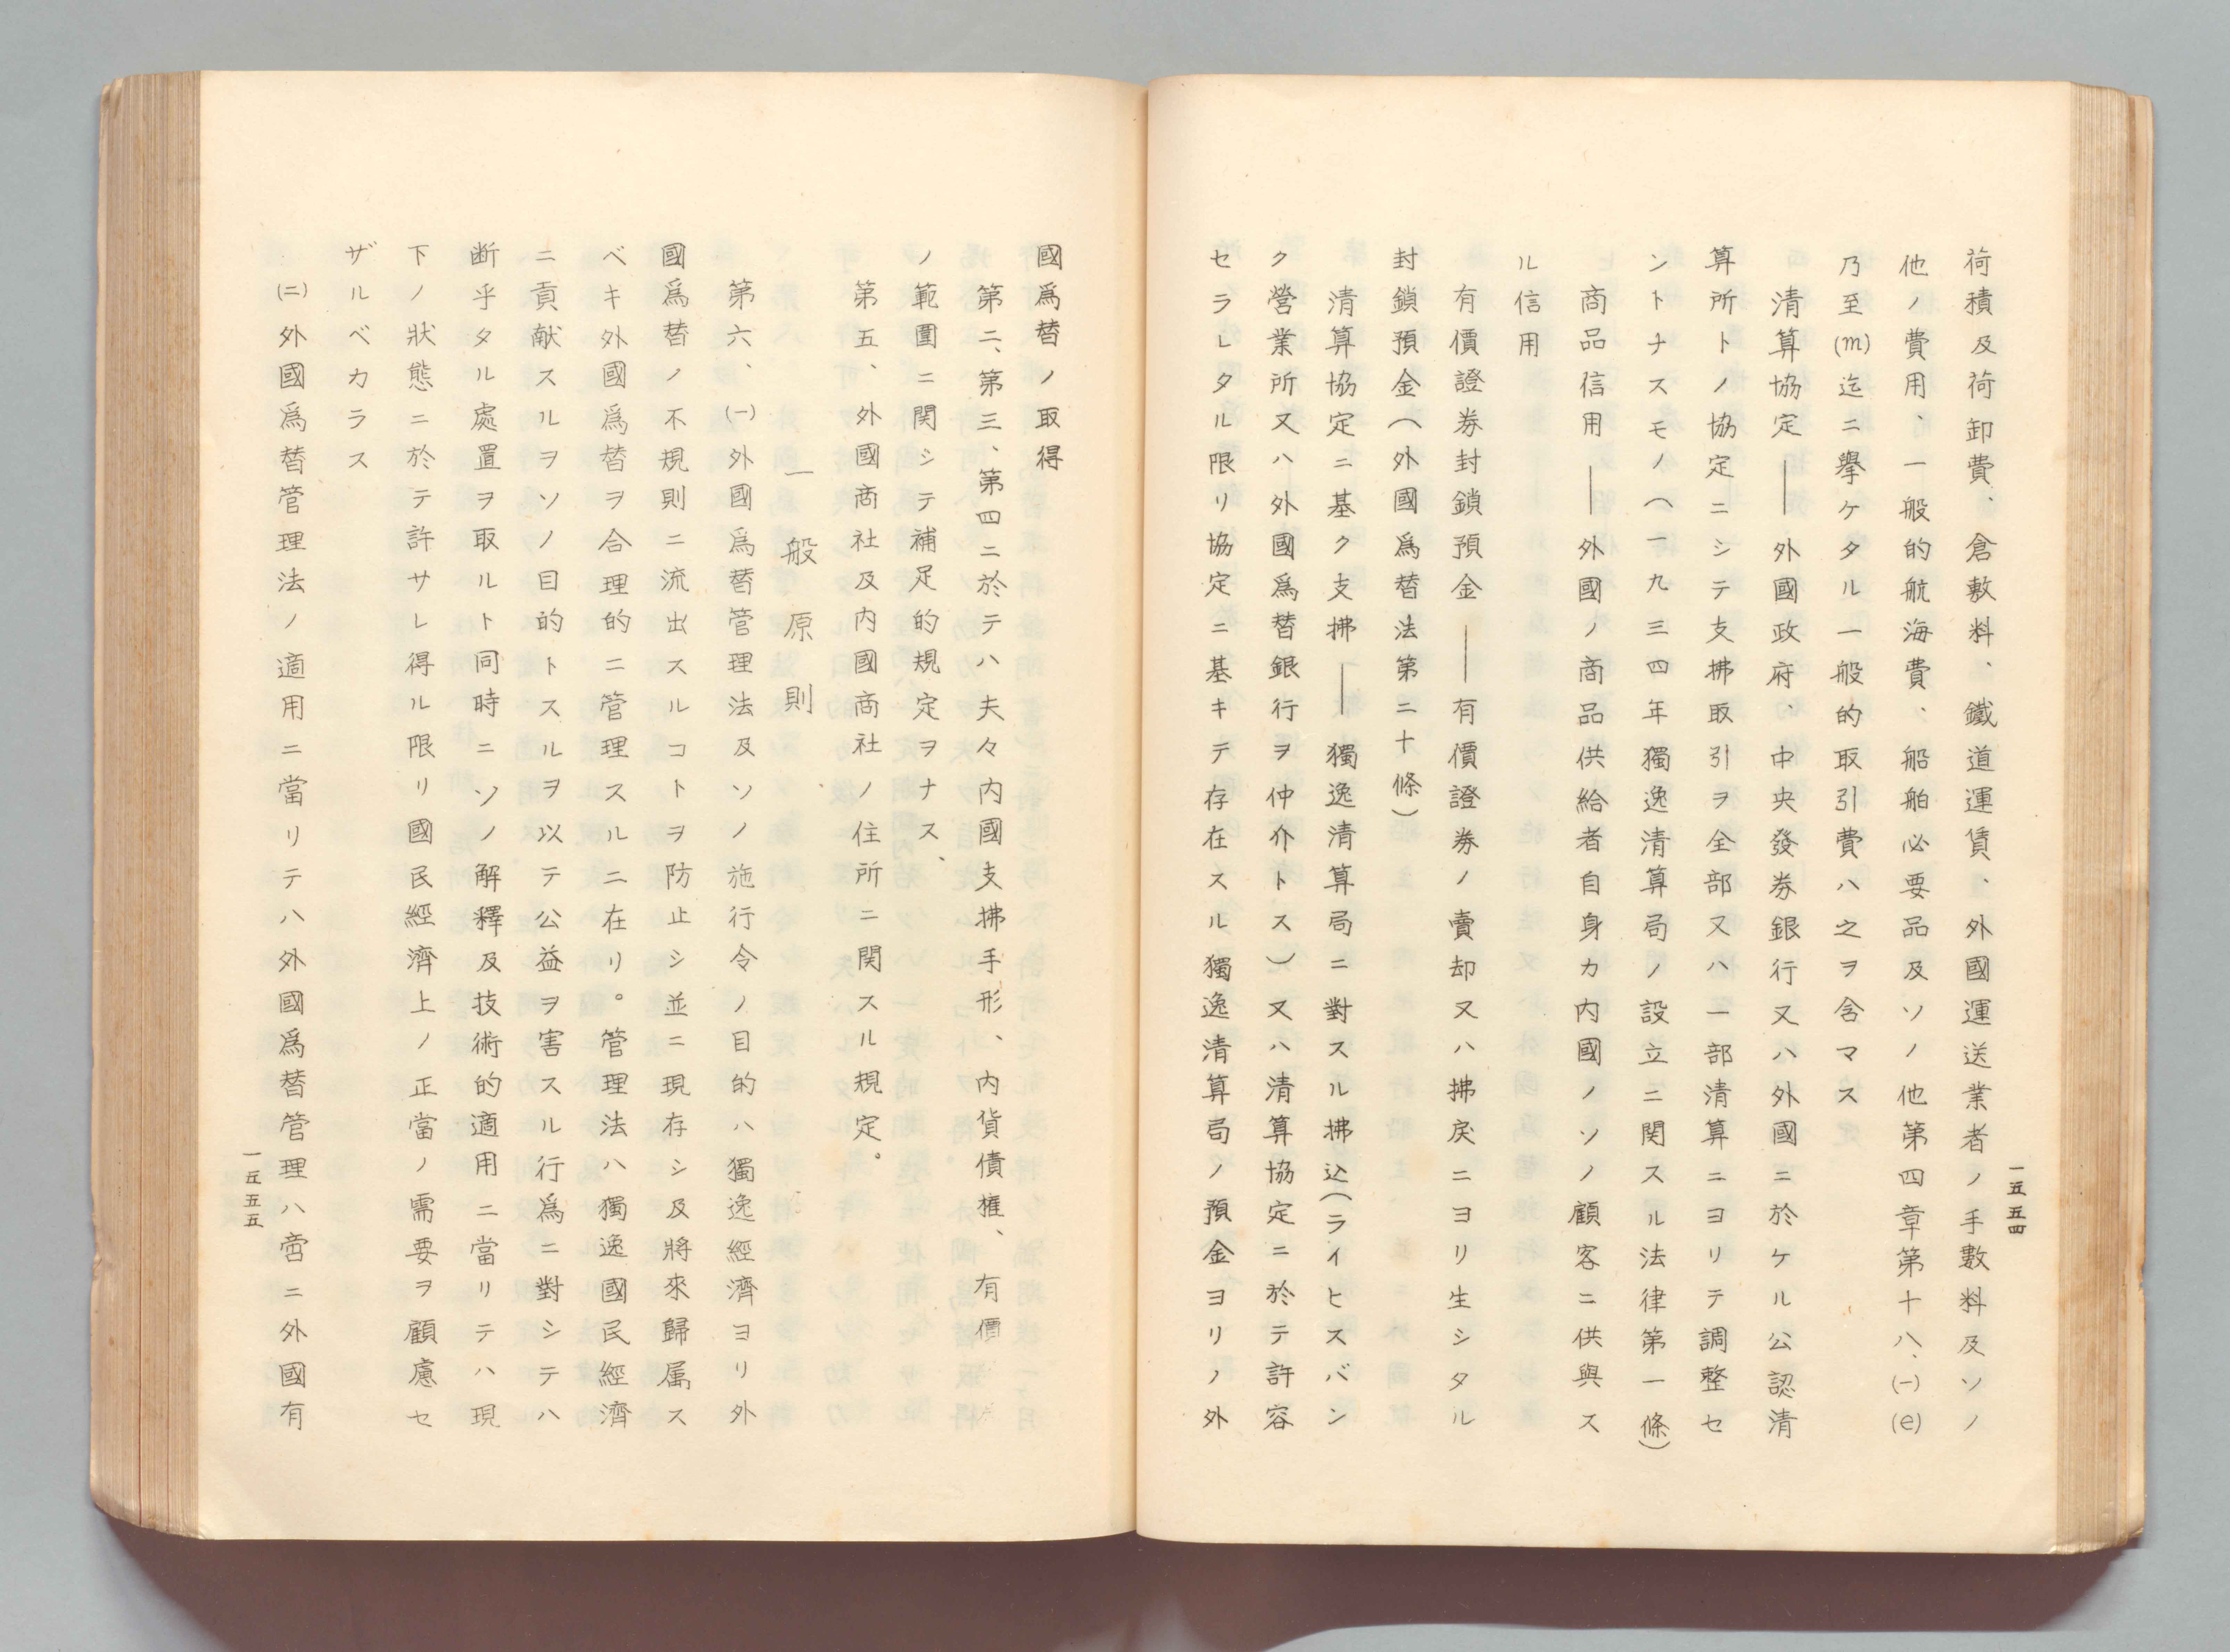 一五五四
荷積及荷卸費、倉敷料、鐵道運賃、外國運送業者ノ手數料及ソノ
他ノ費用、一般的航海費、船舶必要品及ソノ他第四章第十八、(一)(e)
乃至(m)迄ニ擧ケタル一般的取引費ハ之ヲ含マス
清算協定――外國政府、中央發券銀行又ハ外國ニ於ケル公認清
算所トノ協定ニシテ支拂取引ヲ全部又ハ一部清算ニヨリテ調整セ
ントナスモノ(一九三四年獨逸清算局ノ設立ニ関スル法律第一條)
商品信用――外國ノ商品供給者自身カ内國ノソノ顧客ニ供與ス
ル信用
有價證券封鎖預金――有價證券ノ賣却又ハ拂戻ニヨリ生シタル
封鎖預金(外國爲替法第二十條)
清算協定ニ基ク支拂――獨逸清算局ニ對スル拂込(ライヒスバン
ク營業所又ハ外國爲替銀行ヲ仲介トス)又ハ清算協定ニ於テ許容
セラレタル限リ協定ニ基キテ存在スル獨逸清算局ノ預金ヨリノ外
國爲替ノ取得
第二、第三、第四ニ於テハ夫々内國支拂手形、内貨債權、有價
ノ範圍ニ関シテ補足的規定ヲナス、
第五、外國商社及内國商社ノ住所ニ関スル規定。
一般原則
第六、(一)外國爲替管理法及ソノ施行令ノ目的ハ獨逸經濟ヨリ外
國爲替ノ不規則ニ流出スルコトヲ防止シ並ニ現存シ及將來歸属ス
ベキ外國爲替ヲ合理的ニ管理スルニ在リ。管理法ハ獨逸國民經濟
ニ貢献スルヲソノ目的トスルヲ以テ公益ヲ害スル行爲ニ對シテハ
断乎タル處置ヲ取ルト同時ニソノ解釋及技術的適用ニ當リテハ現
下ノ狀態ニ於テ許サレ得ル限リ國民經濟上ノ正當ノ需要ヲ顧慮セ
ザルベカラス
(二)外國爲替管理法ノ適用ニ當リテハ外國爲替管理ハ啻ニ外國有
一五五五